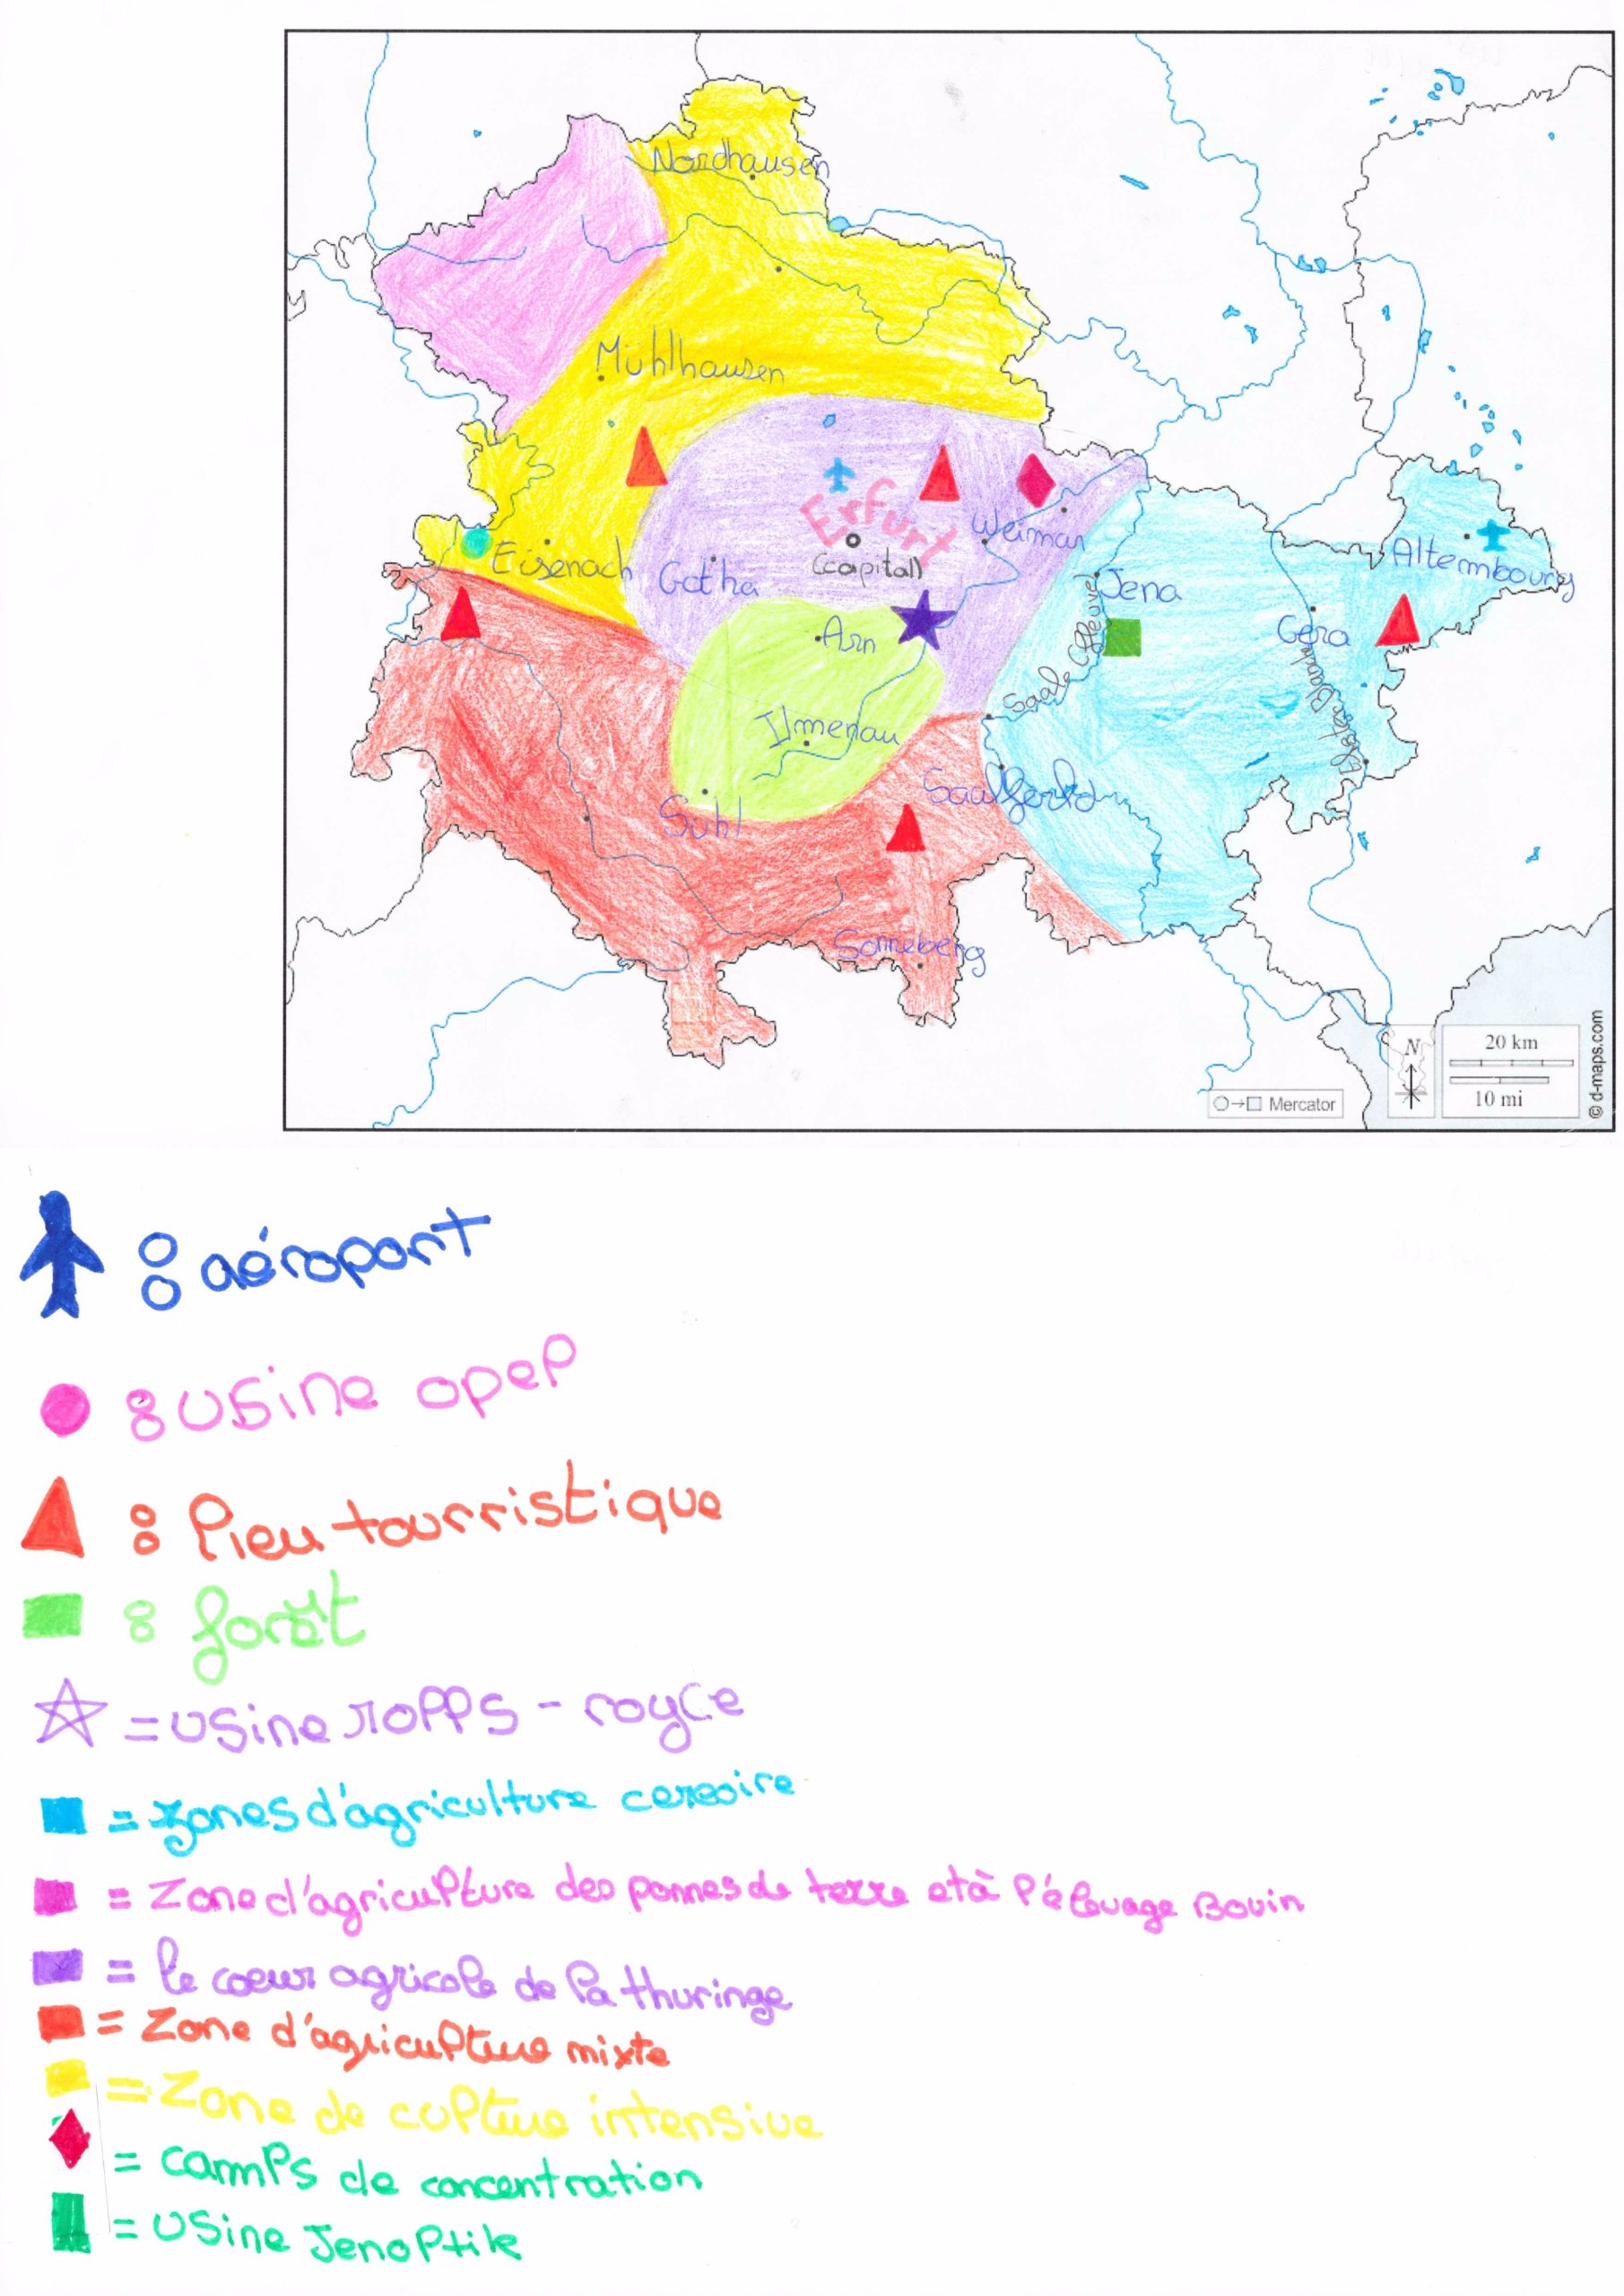 Nordhausen
Mühlhausen
Erfurt
(capital)
Weimar
Eisenach
Gotha
Altembourg
Jena
Arn
Gera
Saale (fleuve)
Ilmenau
Saalferld
Suhl
Sonneberg
N
20 km
10 mi
Mercator
© d-maps.com
: aéroport
: usine opel
: lieu tourristique
: forêt
= usine rolls - royce
= zones d'agriculture cereaire
= Zone d'agriculture des pommes de terre et à l'élevage Bovin
= le coeur agricole de la thuringe
= Zone d'agriculture mixte
= Zone de culture intensive
= camps de concentration
= usine Jenoptik